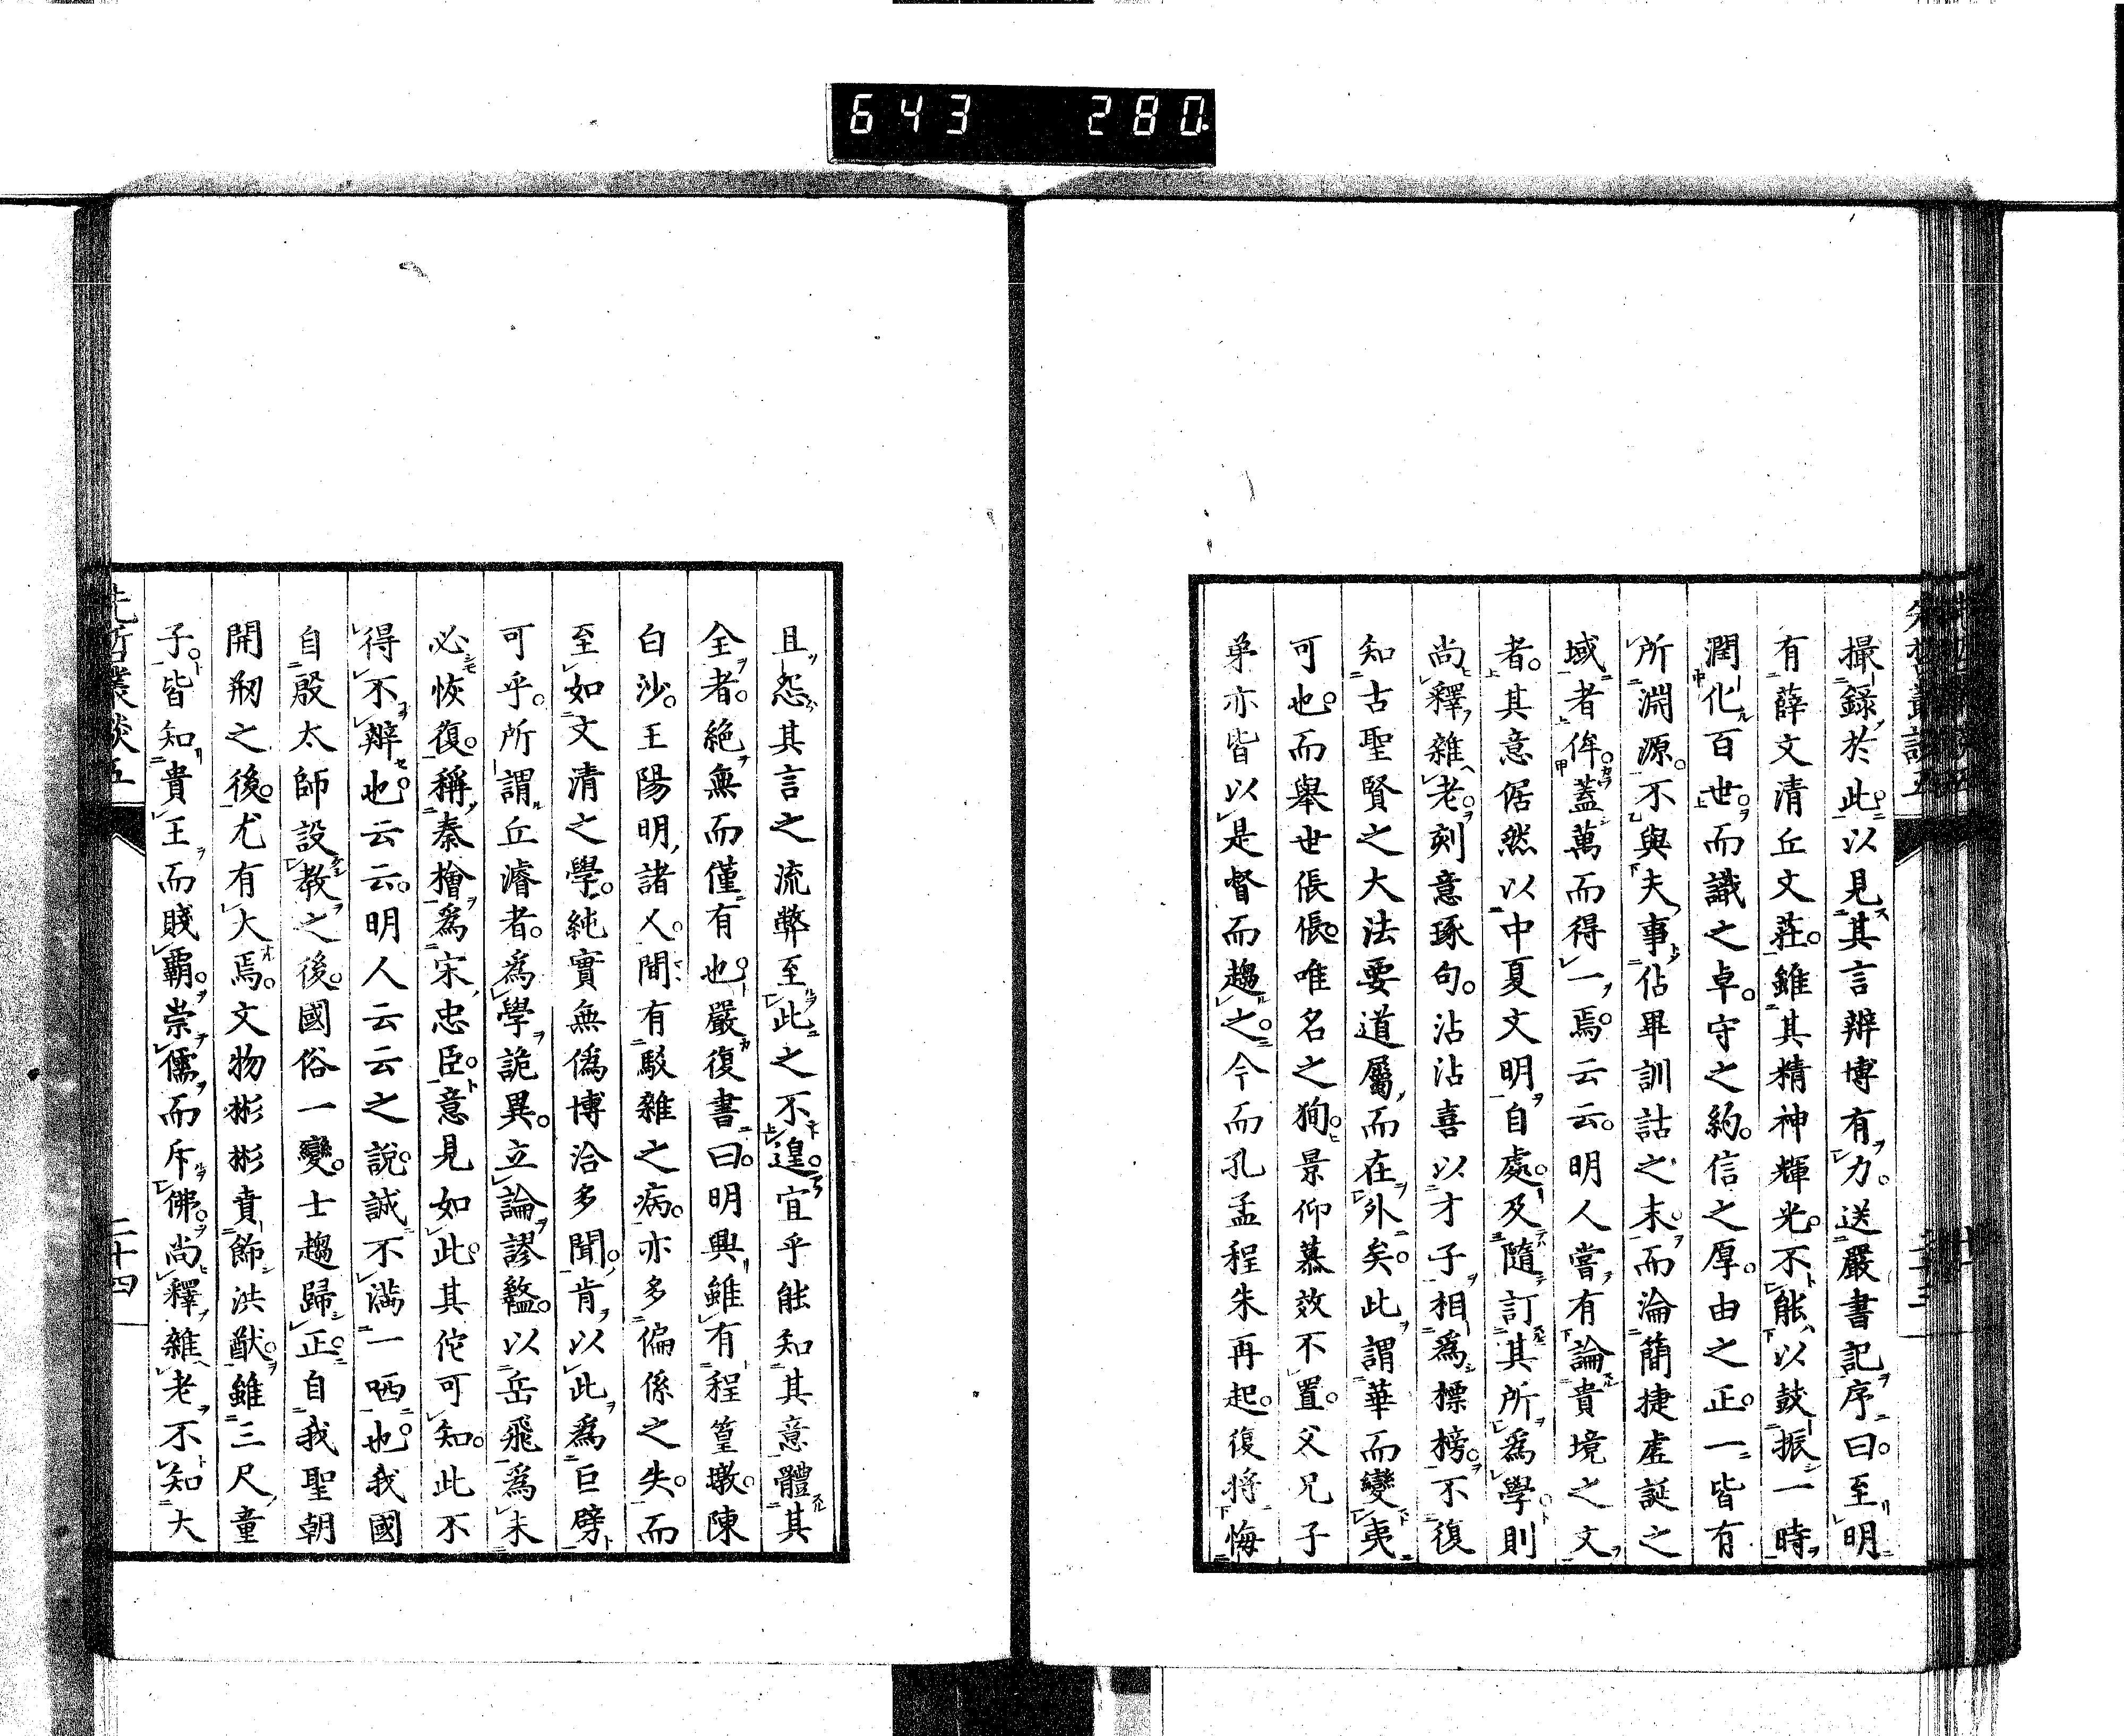 643 280
撮錄於此。以見其言辨博有力。送嚴書記序曰。至明
有薛文清丘文莊。雖其精神輝光。不能以鼓振一時
潤化百世。而識之卓。守之約。信之厚。由之正。一皆有
所淵源。不與夫事佔畢訓詁之末。而淪簡捷虛誕之
域者侔。蓋萬而得一焉。云云。明人嘗有論貴境之文
者。其意倨然以中夏文明自處。及隨訂其所爲學。則
尚釋雜老。刻意琢句。沾沾喜以才子相爲標榜。不復
知古聖賢之大法要道屬而在外矣。此謂華而變夷
可也。而舉世倀倀。唯名之狥。景仰慕效不置。父兄子
弟亦皆以是督而趨之。今而孔孟程朱再起。復將悔
且怨其言之流弊至此之不遑。宜乎能知其意體其
全者。絕無而僅有也。嚴復書曰。明興雖有程篁墩。陳
白沙。王陽明諸人。間有駁雜之病。亦多偏係之失。而
至如文清之學。純實無僞博洽多聞。肯以此爲巨擘
可乎。所謂丘濬者。爲學詭異。立論謬盭。以岳飛爲未
必恢復。稱秦檜爲宋忠臣。意見如此。其佗可知。此不
得不辨也。云云。明人云云之說。誠不滿一哂也。我國
自殷太師設教之後。國俗一變。士趨歸正。自我聖朝
開剏之後。尤有大焉。文物彬彬賁飾洪猷。雖三尺童
子。皆知貴王而賤霸。崇儒而斥佛。尚釋雜老。不知大
先哲叢談五
二十四